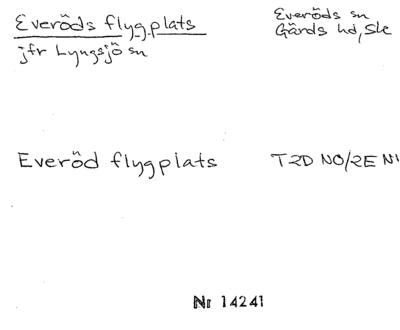 Everöds flygplats
jfr Lyngsjö sn
Everöds sn
Gärds hd, Sk
Everöd flygplats
T2D NO/2E N
Nr 14241